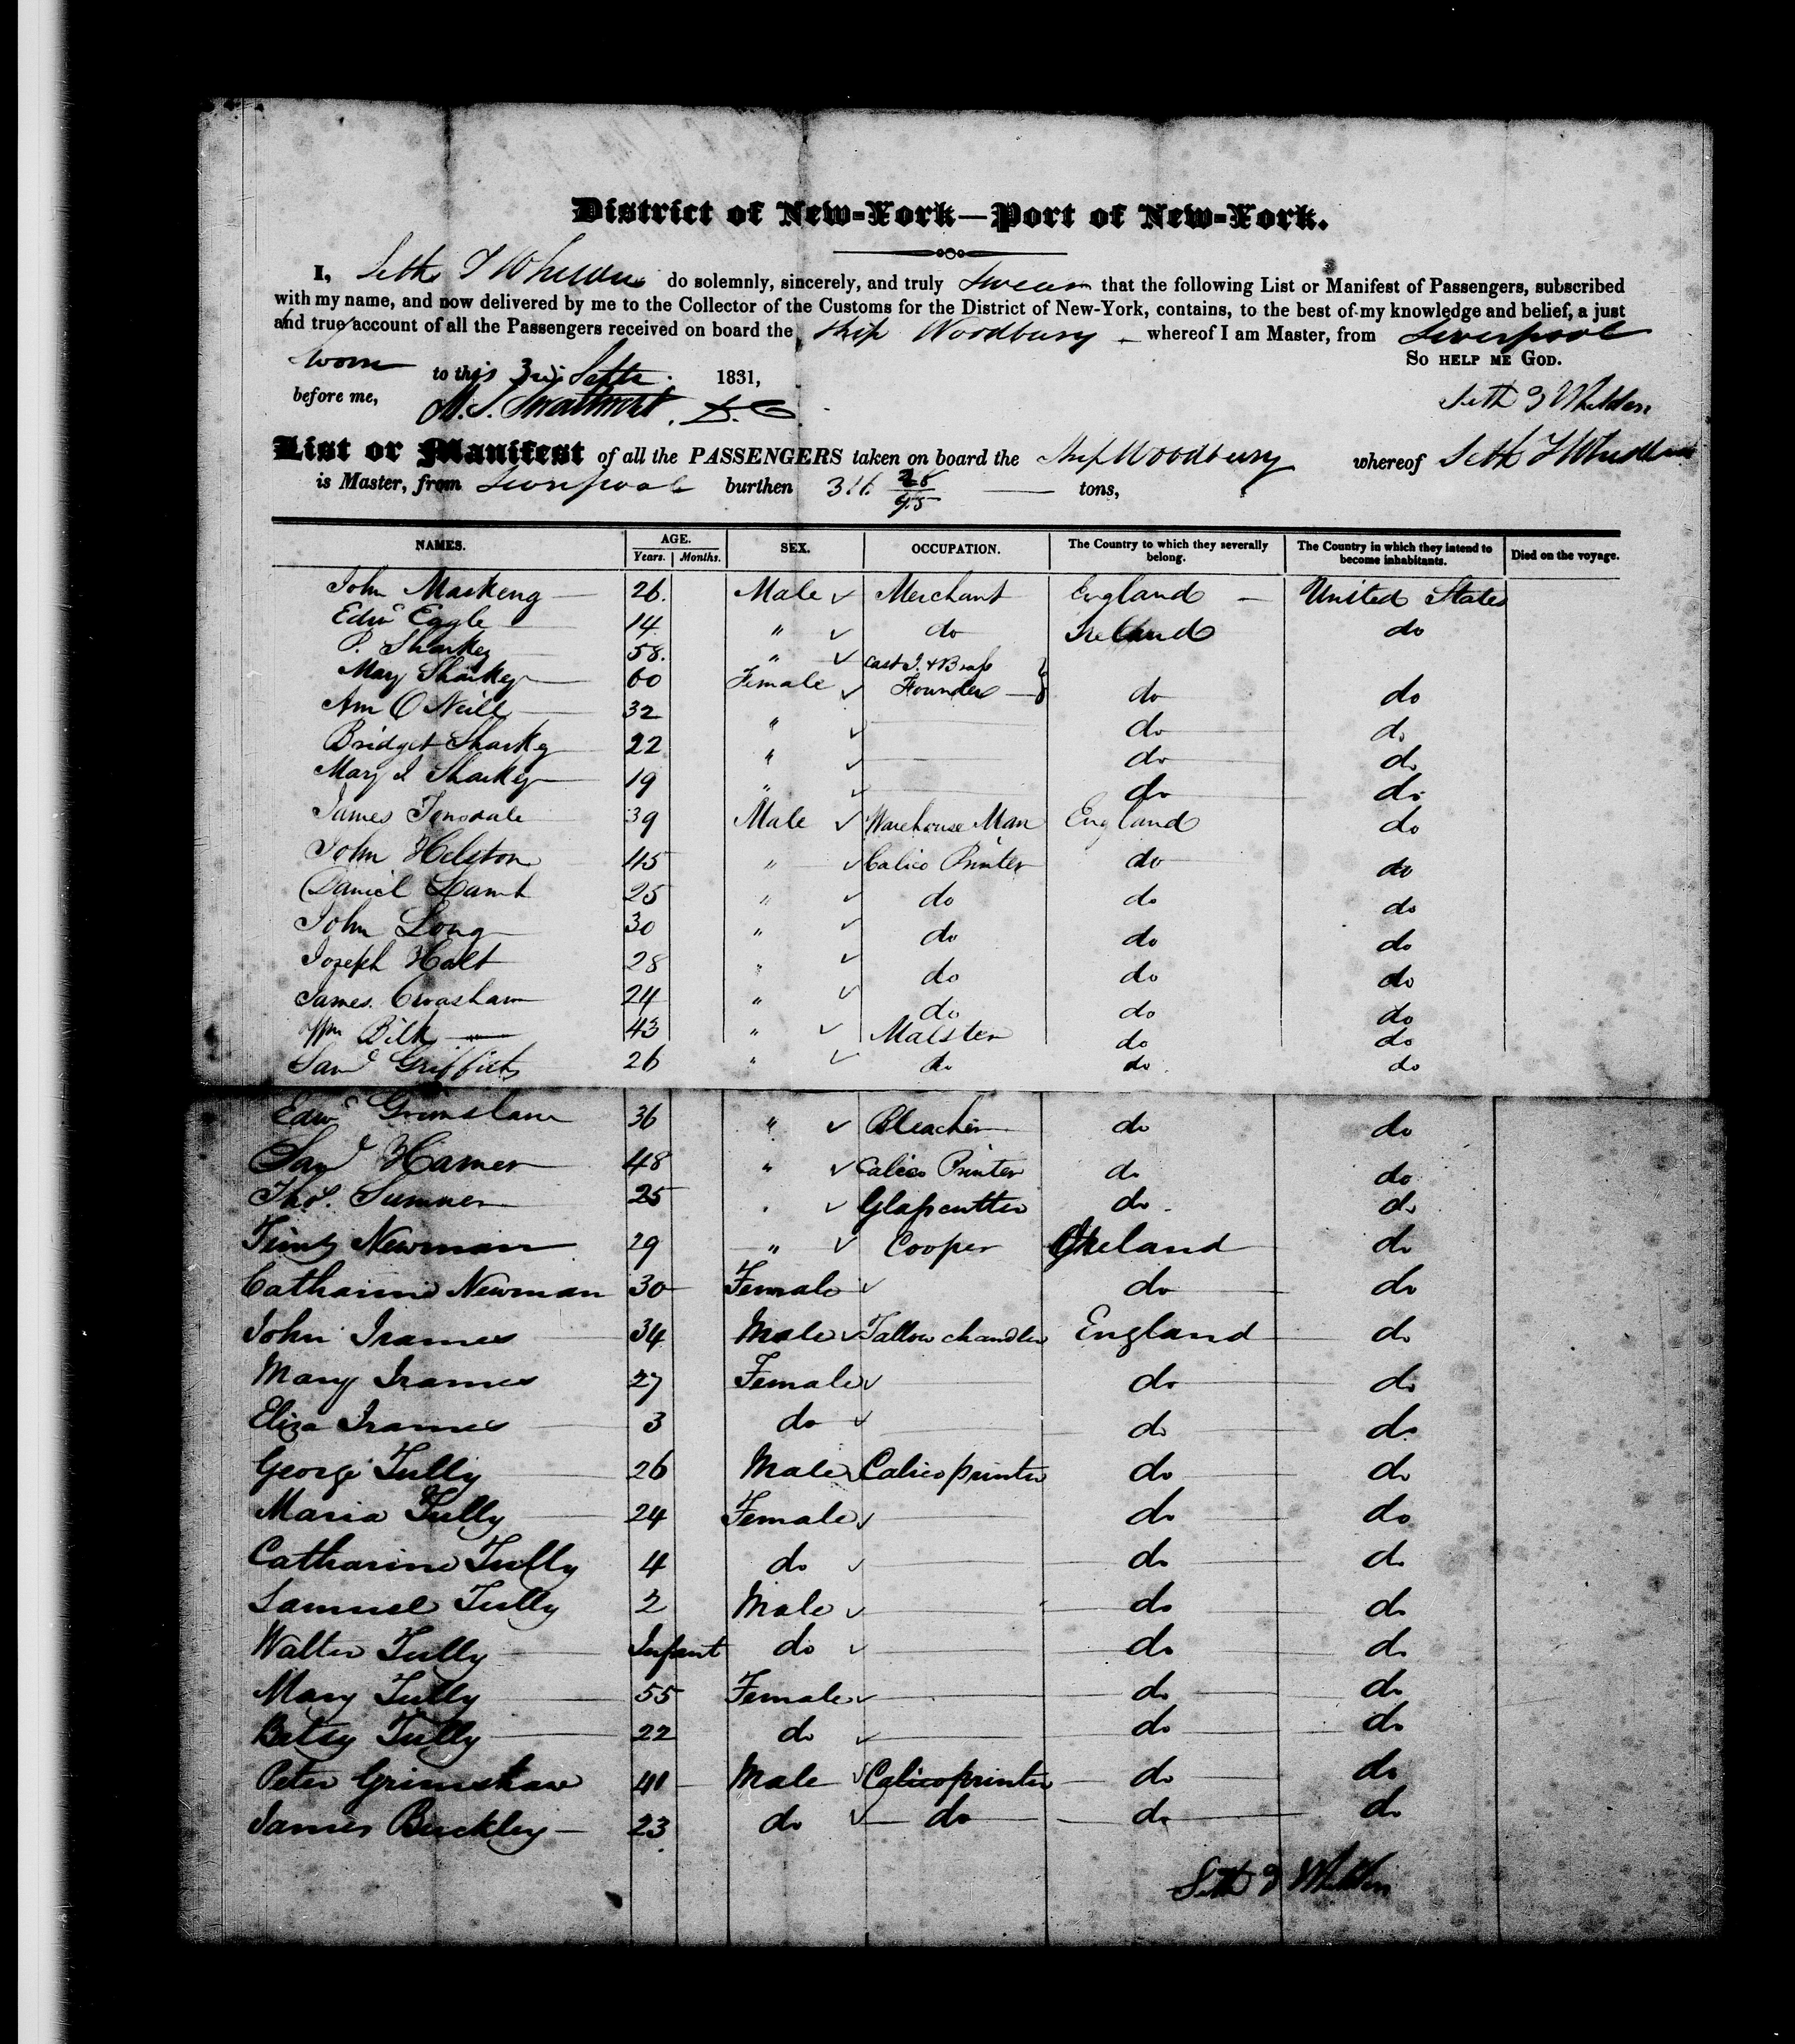 District of New-York—Port of New-York.
I, Seth T Whelden do solemnly, sincerely, and truly Swear that the following List or Manifest of Passengers, subscribed
with my name, and now delivered by me to the Collector of the Customs for the District of New-York, contains, to the best of my knowledge and belief, a just
and true account of all the Passengers received on board the Ship Woodbury whereof I am Master, from Liverpool
Sworn to this 3rd Septr. 1831, So HELP ME GOD.
before me, Seth T Whelden
List or Manifest of all the PASSENGERS taken on board the Ship Woodbury whereof Seth T Whelden
is Master, from Liverpool burthen tons,
NAMES. AGE. Years. Months. SEX. OCCUPATION. The Country to which they severally belong. The Country in which they intend to become inhabitants. Died on the voyage.
John Markeng 26. Male Merchant England United States
Edwd Eggle 14 " do Ireland do
P. Sharkey 58. " Cast I. & Brass
Mary Sharkey 60 Female Founder do do
Ann O Neill 32 " do do
Bridget Sharkey 22 " do do
Mary I Sharkey 19 " do do
James Tonsdale 39 Male Warehouse Man England do
John Helston 45 " Calico Printer do do
Daniel Lamb 25 " do do do
John Long 30 " do do do
Joseph Halt 28 " do do do
James Crwasham 24 " do do do
Wm Bilk 43 " Malster do do
Saml Griffiths 26 " do do do
Edwd Grimshaw 36 " Bleacher do do
Saml Hamer 48 " Calico Printer do do
Thos. Sumner 25 " Glass cutter do do
Timty Newman 29 " Cooper Ireland do
Catharine Newman 30 Female do do
John Irames 34 Male Tallow chandler England do
Mary Irames 27 Female do do
Eliza Irames 3 do do do
George Tully 26 Male Calico printer do do
Maria Tully 24 Female do do
Catharine Tully 4 do do do
Samuel Tully 2 Male do do
Walter Tully Infant do do do
Mary Tully 55 Female do do
Betsy Tully 22 do do do
Peter Grimshaw 41 Male Calico printer do do
James Buckley 23 do do do do
Seth T Whelden